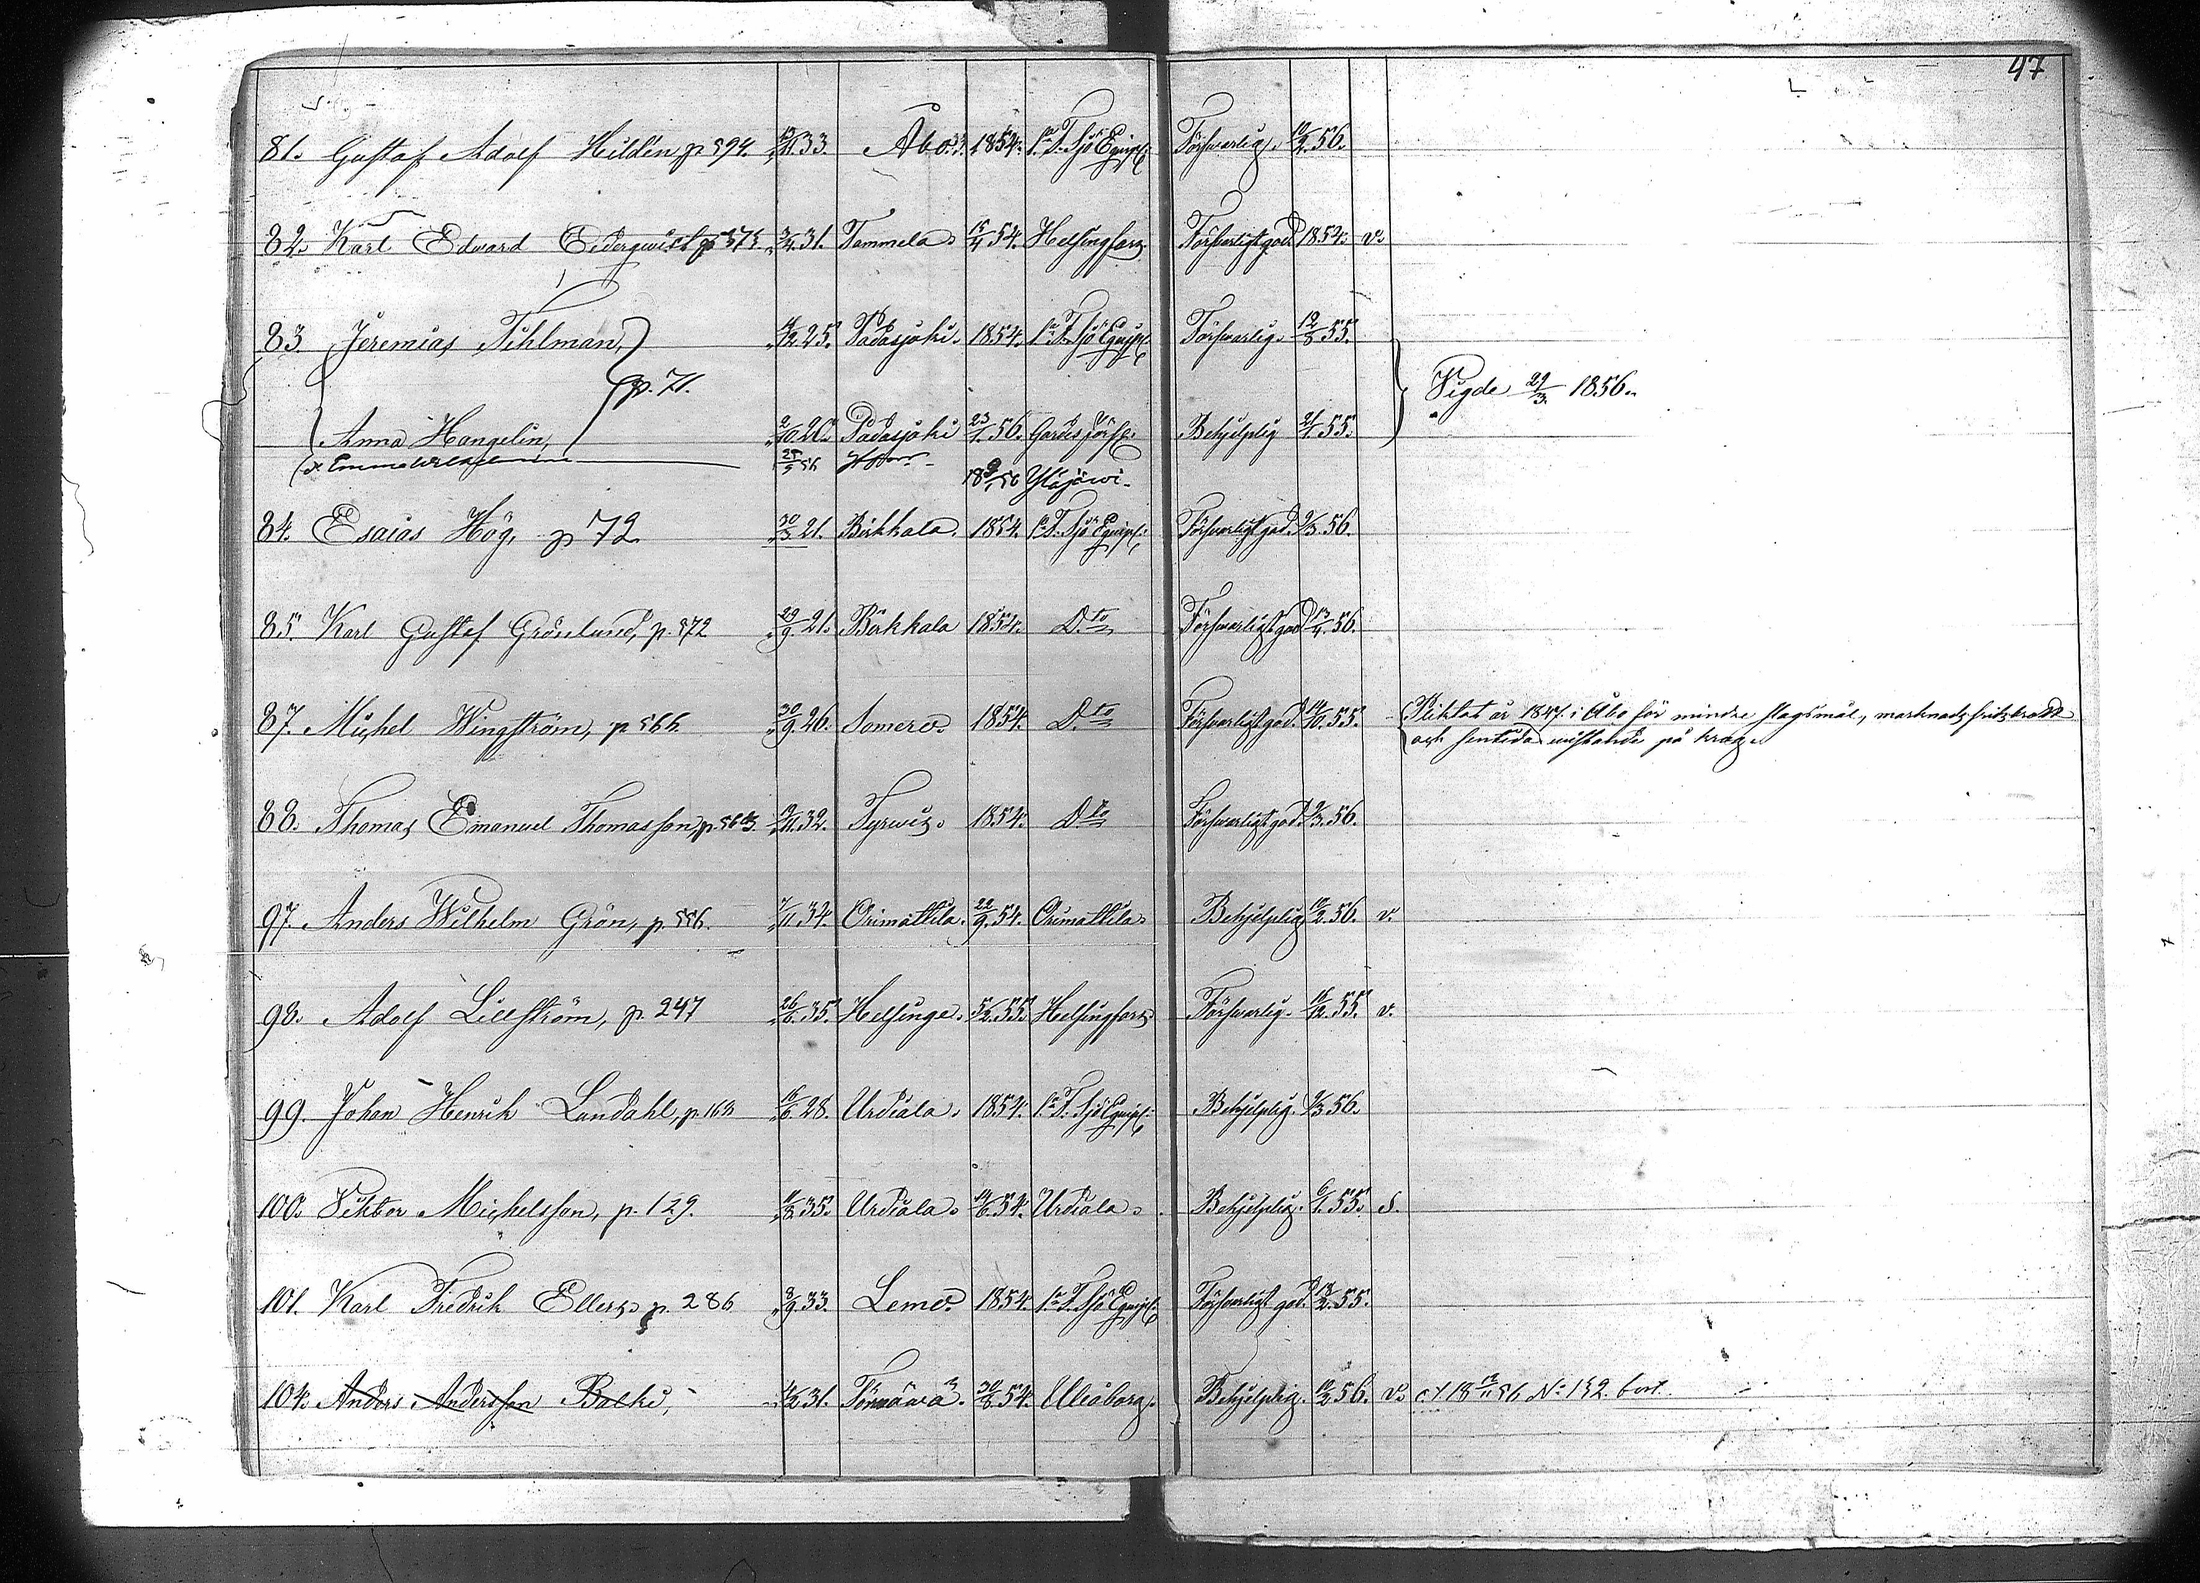 47
81. Gustaf Adolf Hildén p 594. 33. Åbo. 1854. 1:a F. Sjö Equip. Försvarlig. 56.
82. Karl Edward Cederqvist p 575. 31. Tammela. 15/4 54. Helsingfors Försvarligt god 1854. v.
83. Jeremias Tihlman, 25. Padasjoki. 1854. 1:a F. Sjö Equip. Försvarlig. 55.
p. 71. Vigde 29/3. 1856.
Anna Hangelin, 2/10. 26. Padasjoki 23/1. 56. Behjelplig 21/1. 55.
d. Emma 25/5 56 18 56 Ylöjärvi.
84. Esaias Hög, p 72 30/3 21. Birkkala. 1854. 1:a F. Sjö Equip. Försvarligt god. 9/3. 56.
85. Karl Gustaf Grönlund, p. 572 29/9. 21. Birkkala 1854. D:to Försvarligt god 13/4. 56.
87. Michel Wingström, p 566. 30/9. 26. Somero. 1854. D:to Försvarligt god. 14/10. 55. Pliktat år 1847. i Åbo för mindre slagsmål, marknads fridsbrott
och sentida på krog.
88. Thomas Emanuel Thomasson, p. 32. Tyrvis. 1854. D:to Försvarligt god. 9/3. 56.
97. Anders Wilhelm Grön, p. 556. 7/11. 34. Orimattila. 22/9. 54. Orimattila. Behjelplig 56. v.
98. Adolf Lillström, p. 247 26/6. 35. Helsinge. 5/2. 55. Helsingfors Försvarlig. 55. v.
99. Johan Henrik Landahl, p. 16/6 28. Urdiala. 1854. 1:a F. Sjö Equip. Behjelplig. 9/3 56.
100. Viktor Michelsson, p. 129. 11/8. 35. Urdiala. 14/6. 54. Urdiala. Behjelplig. 6/1. 55. s.
101. Karl Fredrik Ellers p. 286 8/9. 33. Lemo. 1854. 1:a F. Sjö Equip. Försvarligt god. 55.
104. Anders Andersson Balki, 31. 30/6. 54. Uleåborg. Behjelplig. 56. v. 18 12/11 56 No 152 bort.